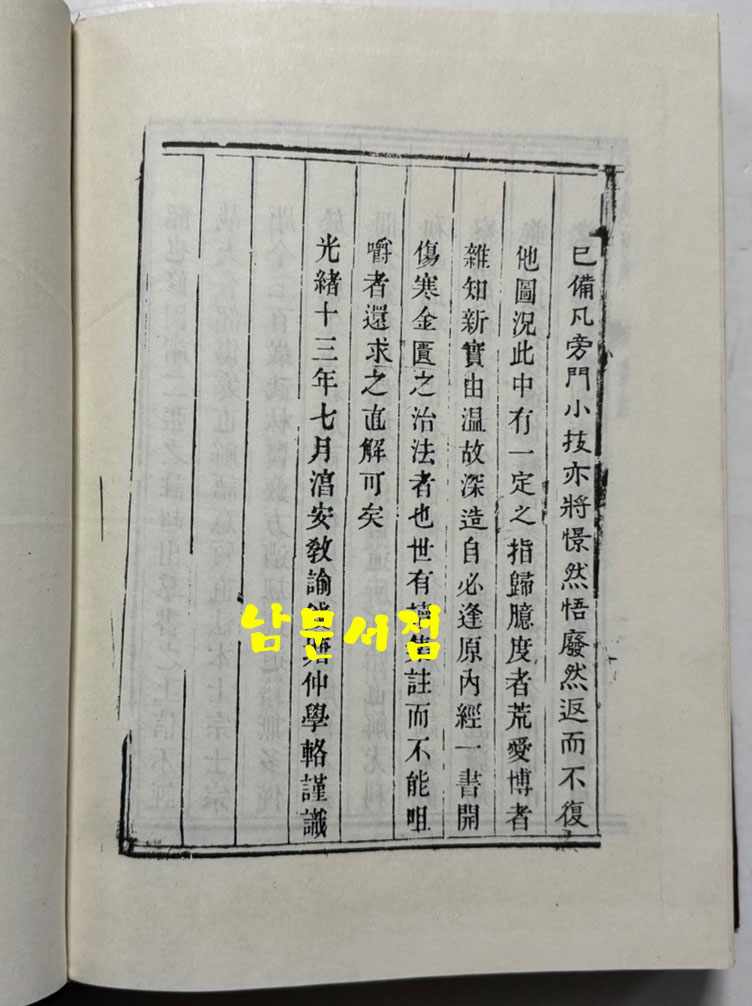 已備凡旁門小技亦將憬然悟廢然返而不復
他圖況此中有一定之指歸臆度者荒愛博者
雜知新實由溫故深造自必逢原內經一書開
傷寒金匱之治法者也世有讀集註而不能咀
嚼者還求之直解可矣
光緒十三年七月淯安敎諭 仲學輅謹識
남문서점